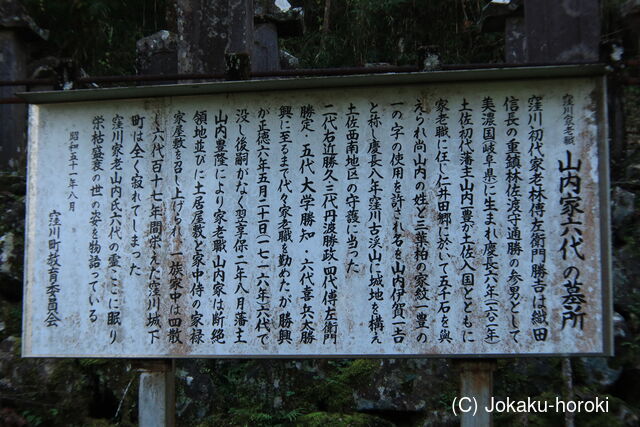 窪川家老職
山内家六代の墓所
窪川初代家老林傳左衛門勝吉は織田
信長の重鎮林佐渡守通勝の参男として
美濃国岐阜県に生まれ慶長六年(一六〇一年)
土佐初代藩主山内一豊が土佐入国とともに
家老職に任じ仁井田郷に於いて五千石を與
えられ尚山内の姓と三葉柏の家紋一豊の
一の字の使用を許され名を山内伊賀一吉
と称し慶長八年窪川古渓山に城地を構え
土佐西南地区の守護に当った
二代右近勝久三代丹波勝政四代傳左衛門
勝定・五代大学勝知・六代喜兵太勝
興に至るまで代々家老職を勤めたが勝興
が正徳六年五月二十日(一七一六年)六代で
没し後嗣がなく翌享保二年八月藩主
山内豊隆により家老職山内家は断絶
領地並びに土居屋敷と家中侍の家禄
家屋敷を召し上げられ、一族家中は四散
し六代百十七年間栄えた窪川城下
町は全く寂れてしまった
窪川家老山内氏六代の霊ここに眠り
栄枯盛衰の世の姿を物語っている
昭和五十一年八月
窪川町教育委員会
(C) Jokaku-horoki